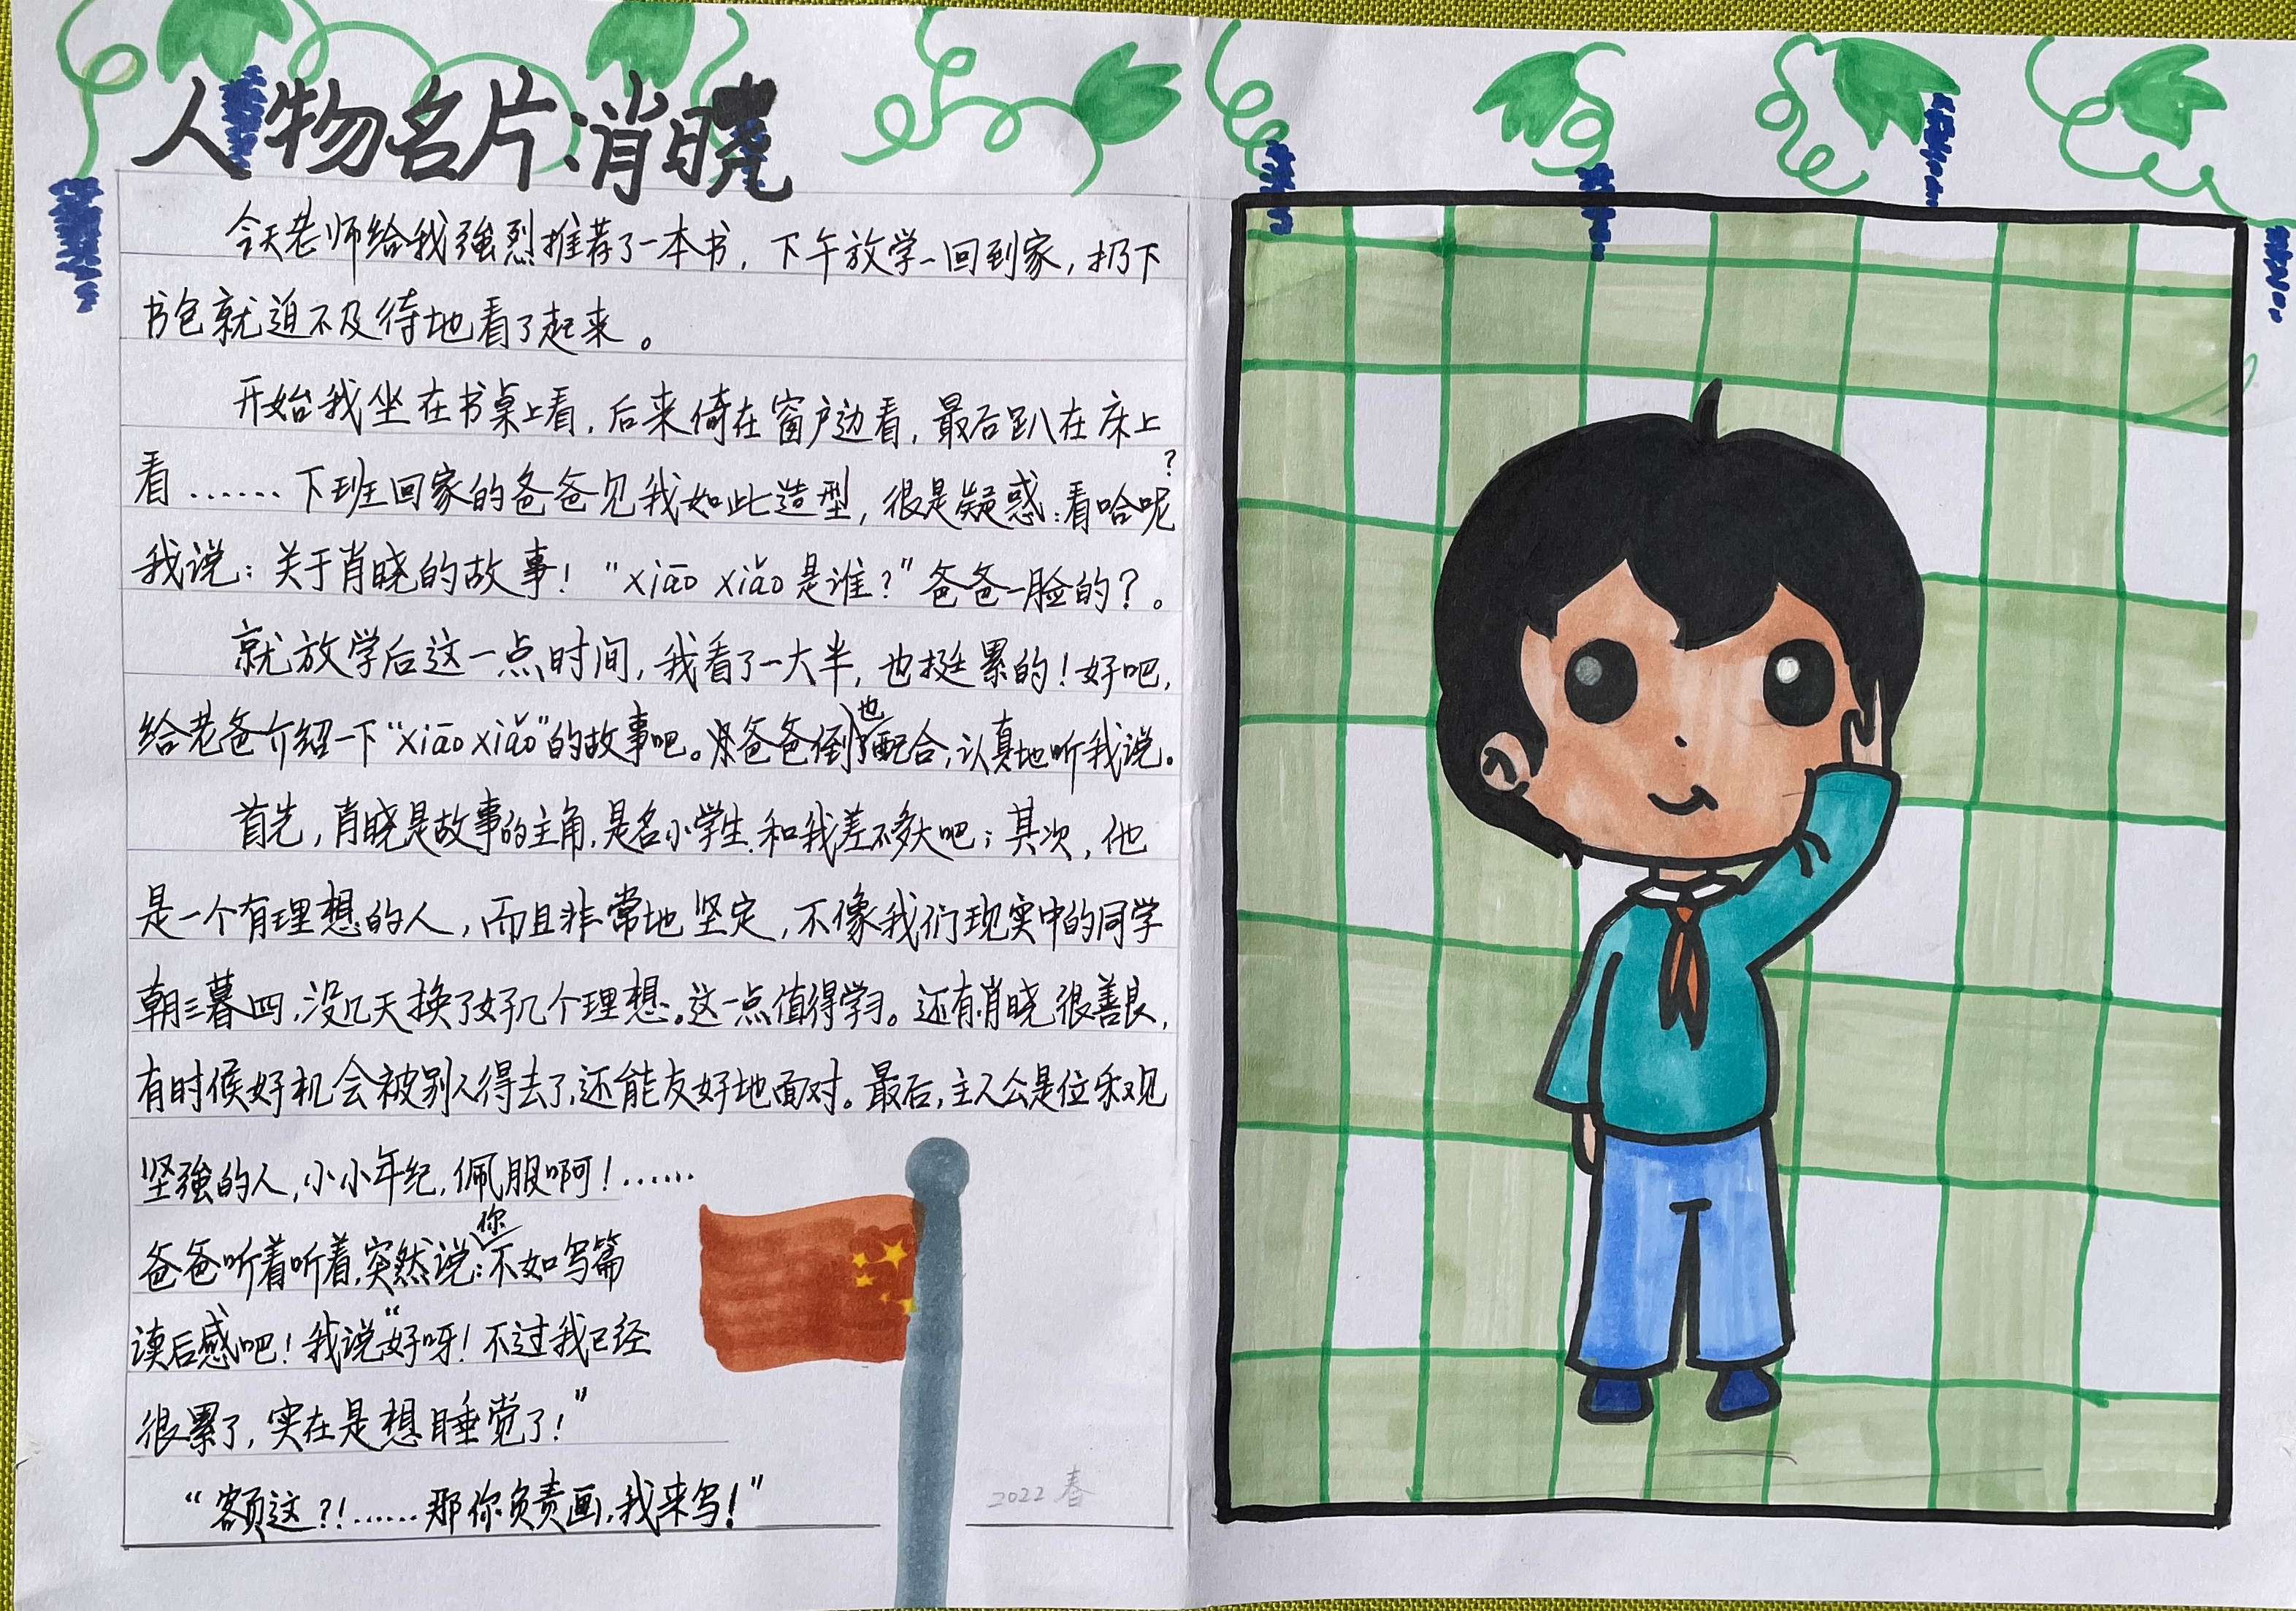 人物名片:肖晓
今天老师给我强烈推荐了一本书，下午放学一回到家，扔下
书包就迫不及待地看了起来。
开始我坐在书桌上看，后来倚在窗户边看，最后趴在床上
看……下班回家的爸爸见我如此造型，很是疑惑：看哈呢？
我说：关于肖晓的故事！“xiāo xiǎo是谁？”爸爸一脸的？。
就放学后这一点时间，我看了一大半，也挺累的！好吧，
给老爸介绍一下“xiāo xiǎo”的故事吧。爸爸倒也配合，认真地听我说。
首先，肖晓是故事的主角，是名小学生，和我差不多大吧；其次，他
是一个有理想的人，而且非常地坚定，不像我们现实中的同学
朝三暮四，没几天换了好几个理想。这一点值得学习。还有肖晓很善良，
有时候好机会被别人得去了，还能友好地面对。最后，主人公是位乐观
坚强的人，小小年纪，佩服啊！……
爸爸听着听着，突然说：你不如写篇
读后感吧！我说“好呀！不过我已经
很累了，实在是想睡觉了！”
“额这？！……那你负责画，我来写！”
2022 春